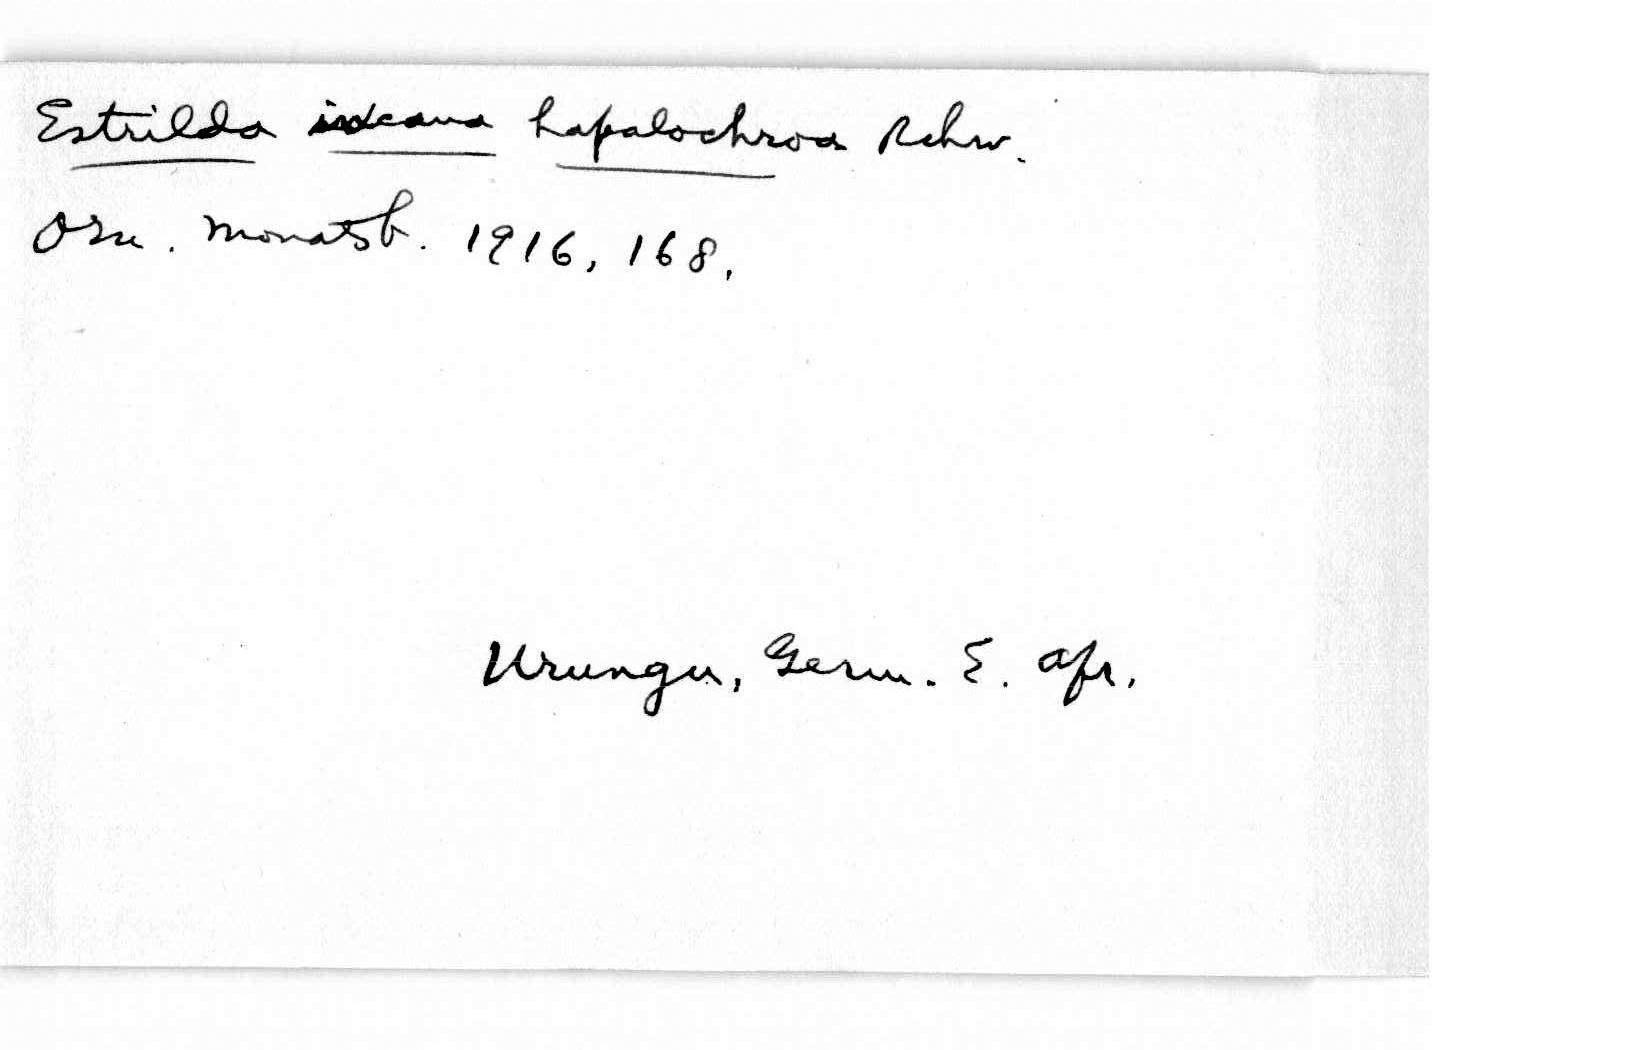 Estrilda incana hapalochroa Rchw.
Orn. Monatsb. 1916, 168.
Urungu, Germ. E. Afr.